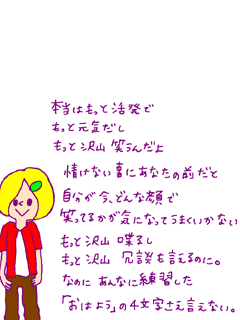 本当はもっと活発で
もっと元気だし
もっと沢山笑うんだよ
情けない事にあなたの前だと
自分が今、どんな顔で
笑ってるかが気になってうまくいかない
もっと沢山喋るし
もっと沢山冗談も言えるのに。
なのにあんなに練習した
「おはよう」の4文字さえ言えない。